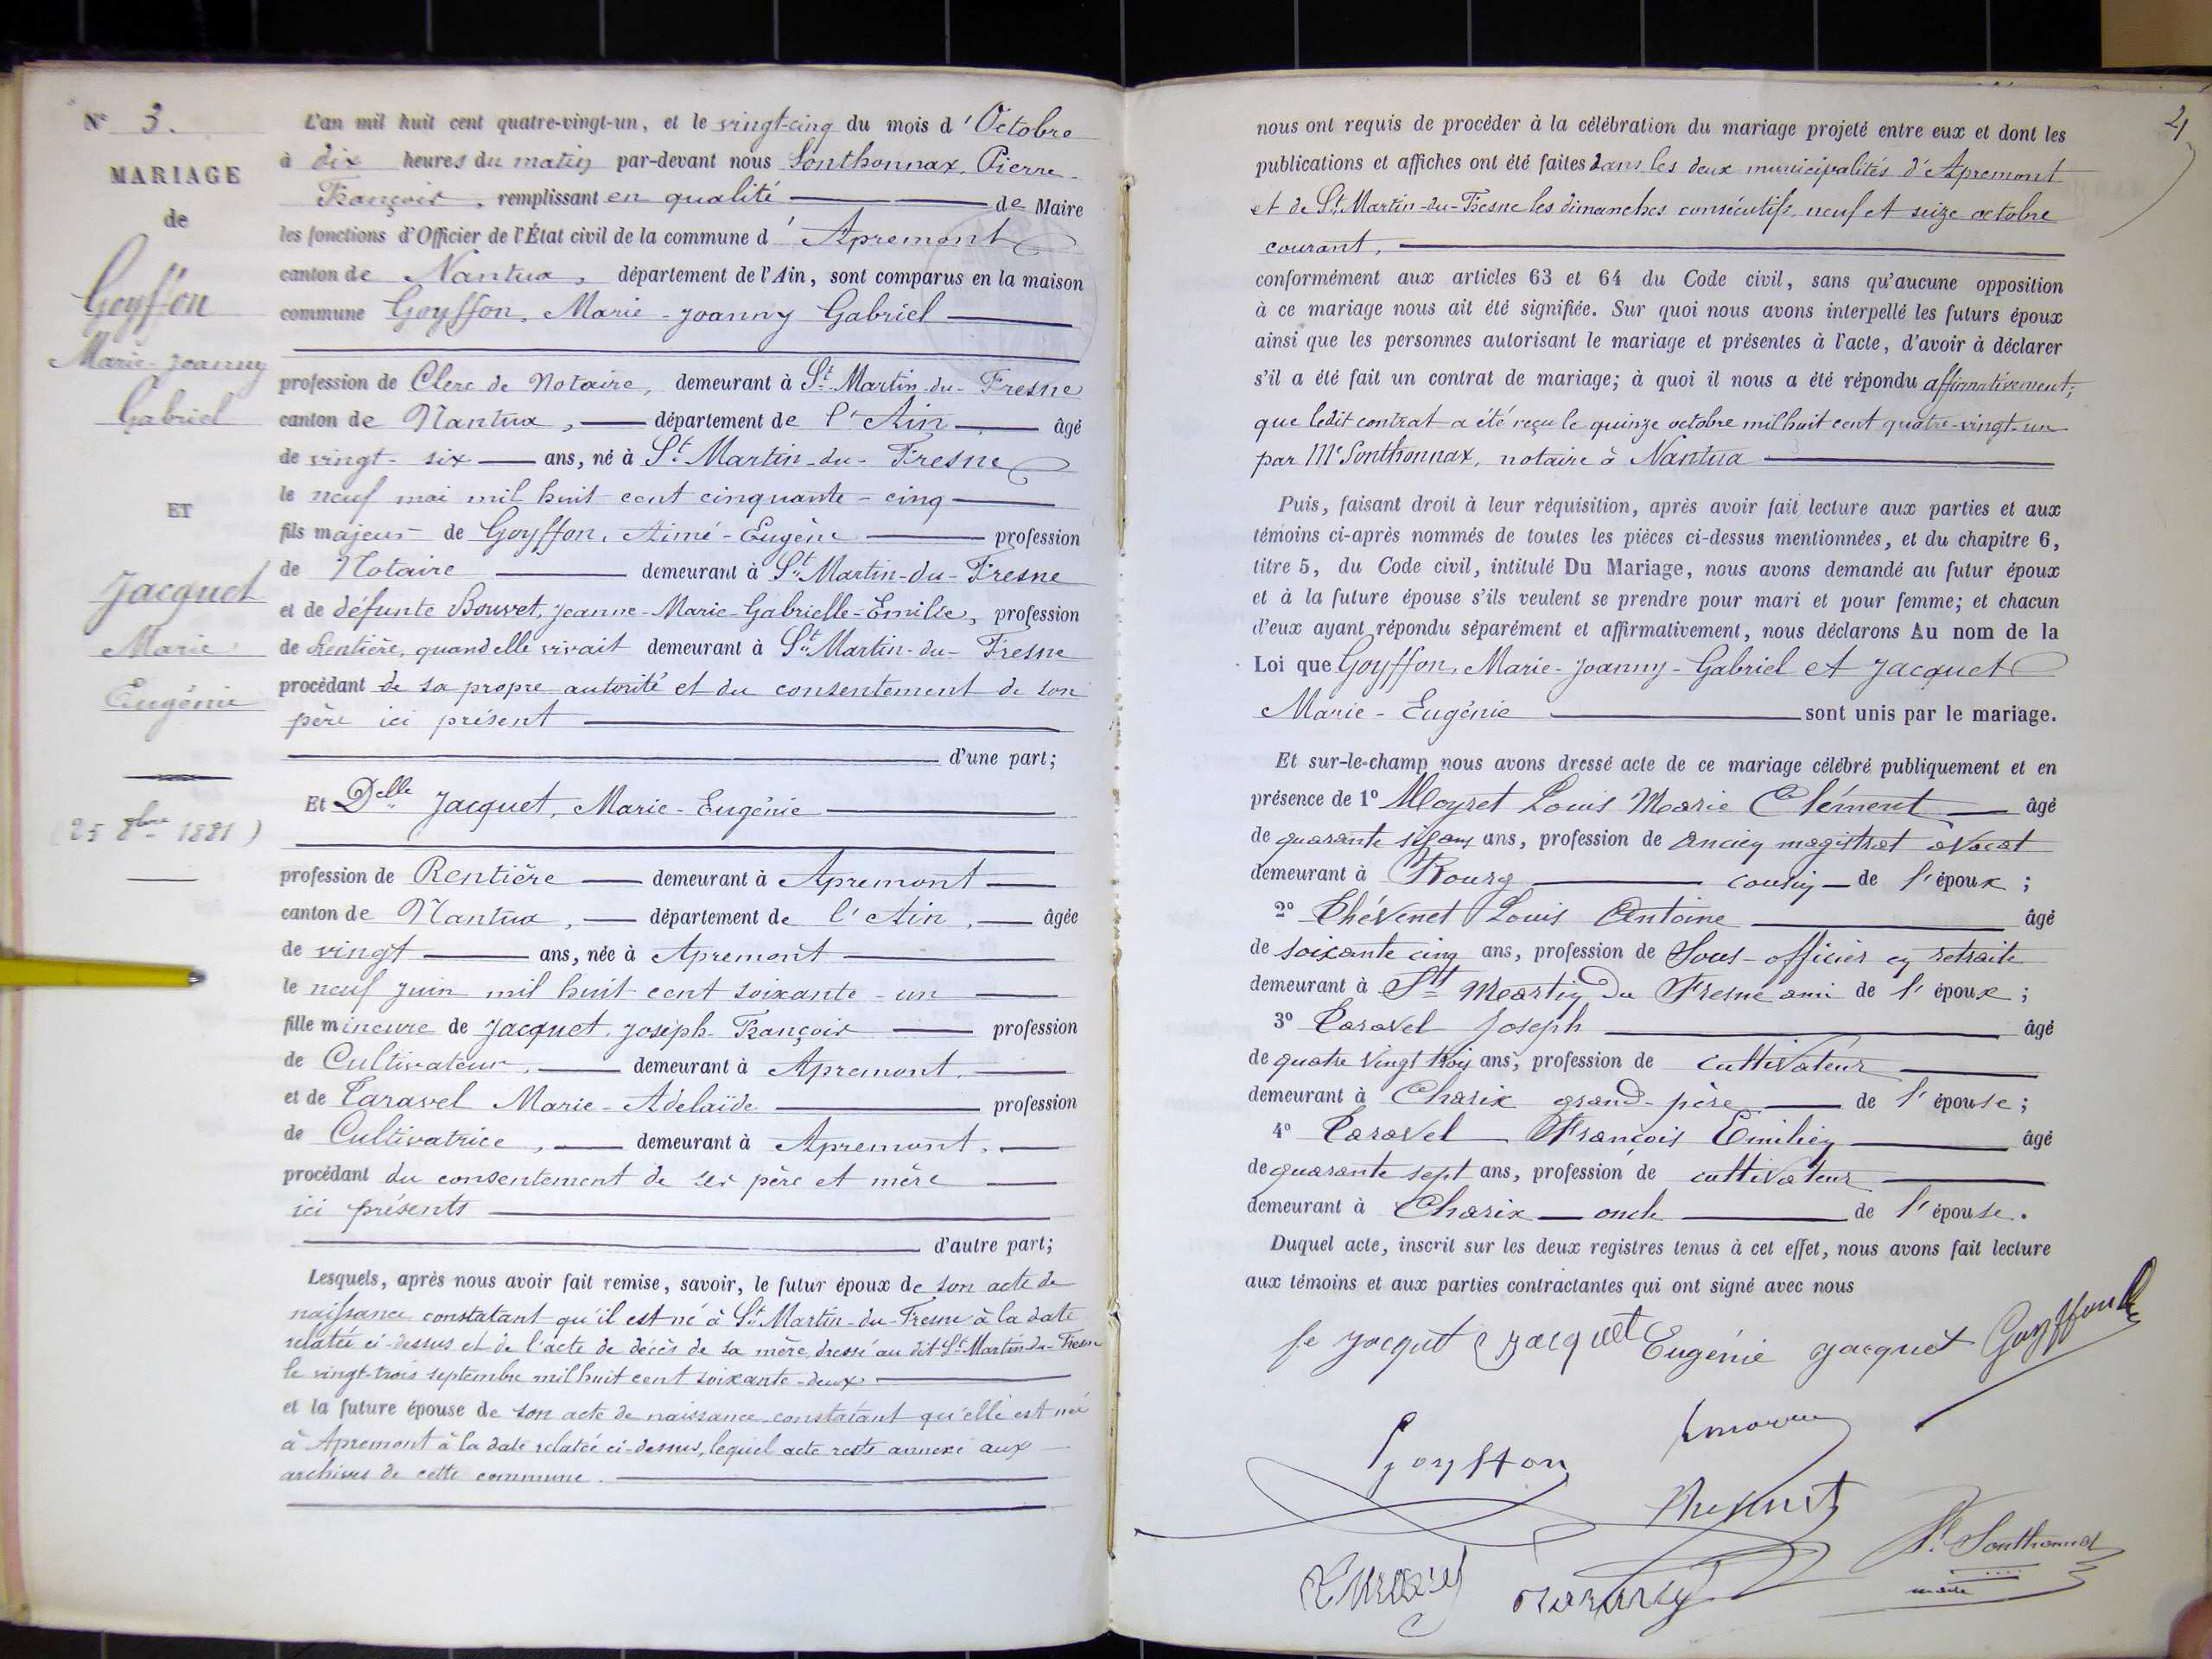 N° 3.
MARIAGE
de
Goyffon
Marie-Joanny
Gabriel
ET
Jacquet
Marie
Eugénie
(25 8bre 1881)
L'an mil huit cent quatre-vingt-un, et le vingt-cinq du mois d'Octobre
à dix heures du matin par-devant nous Sonthonnax, Pierre-
François, remplissant en qualité de Maire
les fonctions d'Officier de l'État civil de la commune d'Apremont
canton de Nantua, département de l'Ain, sont comparus en la maison
commune Goyffon, Marie-Joanny Gabriel
profession de Clerc de Notaire, demeurant à St Martin-du-Fresne
canton de Nantua, département de l'Ain, âgé
de vingt-six ans, né à St Martin-du-Fresne
le neuf mai mil huit cent cinquante-cinq
fils majeur de Goyffon, Aimé-Eugène profession
de Notaire demeurant à St Martin-du-Fresne
et de défunte Bouvet, Jeanne-Marie-Gabrielle-Emilie, profession
de Rentière, quand elle vivait demeurant à St Martin-du-Fresne
procédant de sa propre autorité et du consentement de son
père ici présent
d'une part;
Et Delle Jacquet, Marie-Eugénie
profession de Rentière demeurant à Apremont
canton de Nantua, département de l'Ain, âgée
de vingt ans, née à Apremont
le neuf juin mil huit cent soixante-un
fille mineure de Jacquet, Joseph-François profession
de Cultivateur, demeurant à Apremont,
et de Taravel Marie-Adelaïde profession
de Cultivatrice, demeurant à Apremont,
procédant du consentement de ses père et mère
ici présents
d'autre part;
Lesquels, après nous avoir fait remise, savoir, le futur époux de son acte de
naissance constatant qu'il est né à St Martin-du-Fresne à la date
relatée ci-dessus et de l'acte de décès de sa mère, dressé au dit St Martin-du-Fresne
le vingt-trois septembre mil huit cent soixante-deux
et la future épouse de son acte de naissance constatant qu'elle est née
à Apremont à la date relatée ci-dessus, lequel acte reste annexé aux
archives de cette commune.
4
nous ont requis de procéder à la célébration du mariage projeté entre eux et dont les
publications et affiches ont été faites dans les deux municipalités d'Apremont
et de St Martin-du-Fresne les dimanches consécutifs neuf et seize octobre
courant,
conformément aux articles 63 et 64 du Code civil, sans qu'aucune opposition
à ce mariage nous ait été signifiée. Sur quoi nous avons interpellé les futurs époux
ainsi que les personnes autorisant le mariage et présentes à l'acte, d'avoir à déclarer
s'il a été fait un contrat de mariage; à quoi il nous a été répondu affirmativement;
que ledit contrat a été reçu le quinze octobre mil huit cent quatre-vingt-un
par Me Sonthonnax, notaire à Nantua
Puis, faisant droit à leur réquisition, après avoir fait lecture aux parties et aux
témoins ci-après nommés de toutes les pièces ci-dessus mentionnées, et du chapitre 6,
titre 5, du Code civil, intitulé Du Mariage, nous avons demandé au futur époux
et à la future épouse s'ils veulent se prendre pour mari et pour femme; et chacun
d'eux ayant répondu séparément et affirmativement, nous déclarons Au nom de la
Loi que Goyffon, Marie-Joanny-Gabriel et Jacquet
Marie-Eugénie sont unis par le mariage.
Et sur-le-champ nous avons dressé acte de ce mariage célébré publiquement et en
présence de 1° Moyret Louis Marie Clément âgé
de quarante ans, profession de Ancien magistrat avocat
demeurant à Bourg cousin de l'époux;
2° Thévenet Louis Antoine âgé
de soixante cinq ans, profession de Sous-officier en retraite
demeurant à St Martin du Fresne ami de l'époux;
3° Taravel Joseph âgé
de quatre vingt trois ans, profession de cultivateur
demeurant à Charix grand-père de l'épouse;
4° Taravel François Emilien âgé
de quarante sept ans, profession de cultivateur
demeurant à Charix oncle de l'épouse.
Duquel acte, inscrit sur les deux registres tenus à cet effet, nous avons fait lecture
aux témoins et aux parties contractantes qui ont signé avec nous
Jacquet Jacquet Eugénie Jacquet Goyffon
Goyffon
Thevenet
Sonthonnax
maire
Taravel